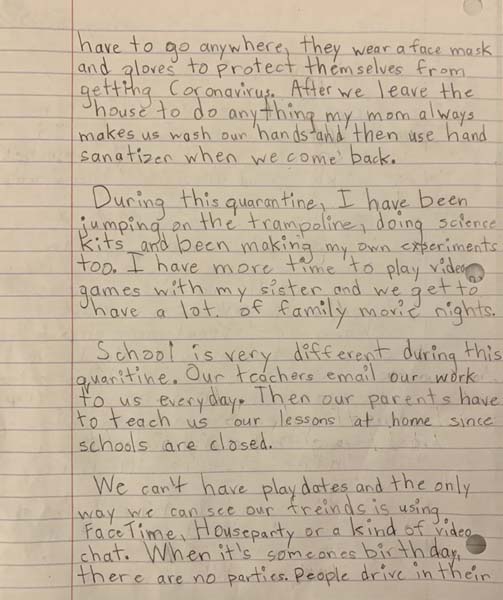 have to go anywhere, they wear a face mask
and gloves to protect themselves from
getting Coronavirus. After we leave the
house to do anything my mom always
makes us wash our hands and then use hand
sanatizer when we come back.
During this quarantine, I have been
jumping on the trampoline, doing science
kits and been making my own experiments
too. I have more time to play video
games with my sister and we get to
have a lot of family movie nights.
School is very different during this
quaritine. Our teachers email our work
to us everyday. Then our parents have
to teach us our lessons at home since
schools are closed.
We can't have playdates and the only
way we can see our freinds is using
FaceTime, Houseparty or a kind of video
chat. When it's someones birthday,
there are no parties. People drive in their